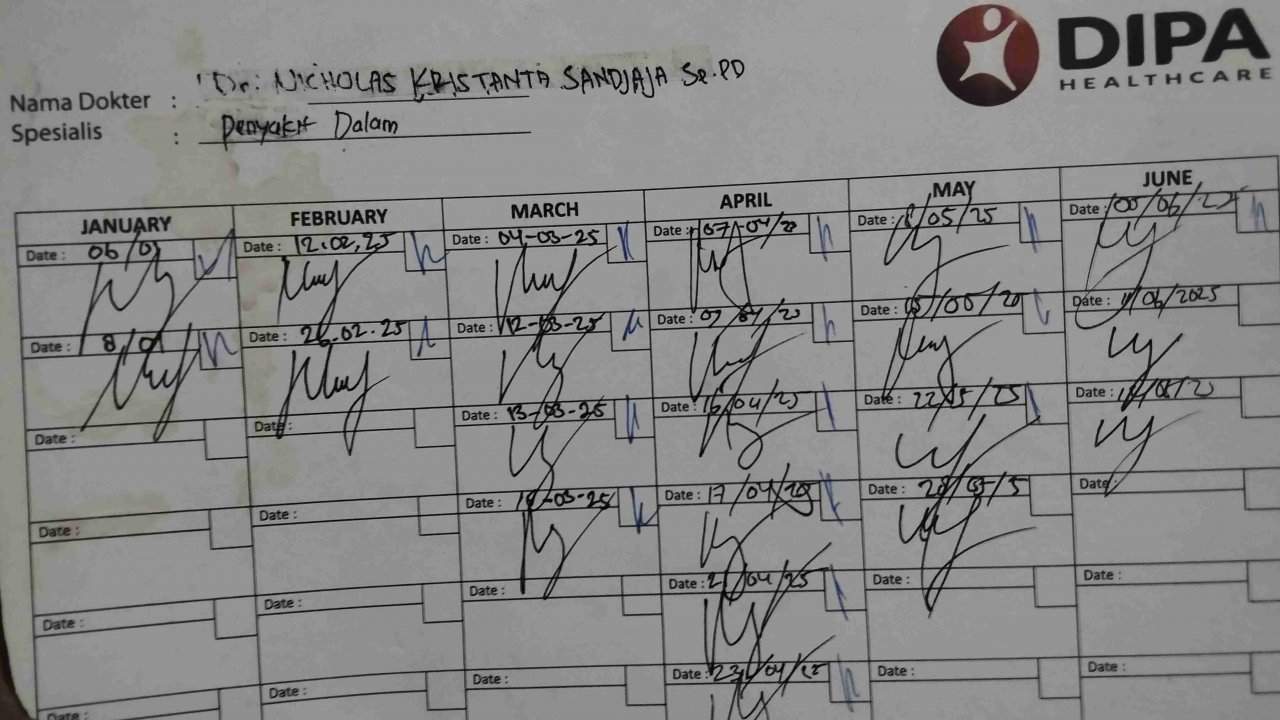 DIPA
HEALTHCARE
Nama Dokter : Dr. NICHOLAS KRISTANTA SANDJAJA Sp.PD
Spesialis : Penyakit Dalam
JANUARY FEBRUARY MARCH APRIL MAY JUNE
Date : 06/01 Date : 12.02.25 Date : 04-03-25 Date : 07-04/25 Date : /05/25 Date : /06/25
Date : 8/01 Date : 26.02.25 Date : 12-03-25 Date : 09/04/25 Date : Date : 11/06/2025
Date : Date : Date : 13-03-25 Date : 16/04/25 Date : 22/5/25 Date :
Date : Date : Date : 19-03-25 Date : 17/04/25 Date : 28/05/5 Date :
Date : Date : Date : Date : 21/04/25 Date : Date :
Date : Date : Date : Date : 23/04/25 Date : Date :